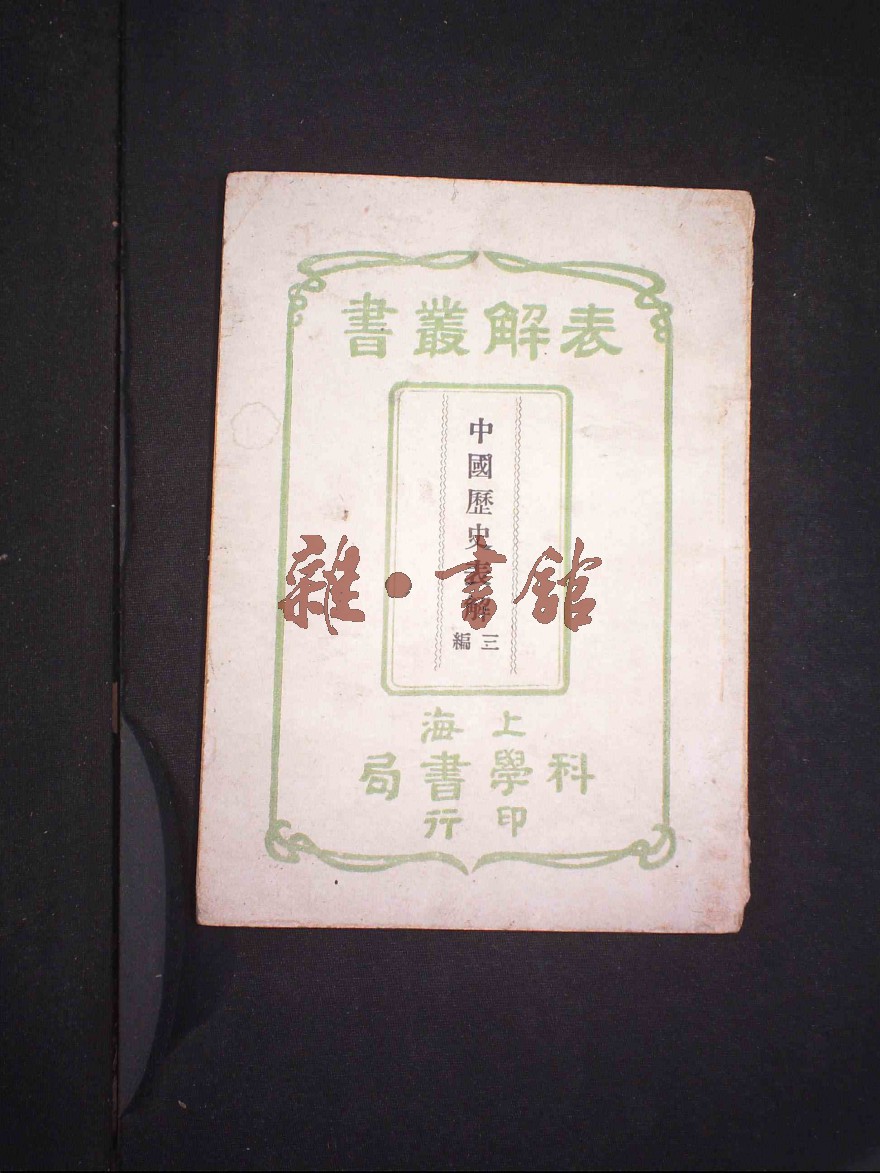 表解叢書
中國歷史表解
三編
雜·書館
上海
科學書局
印行